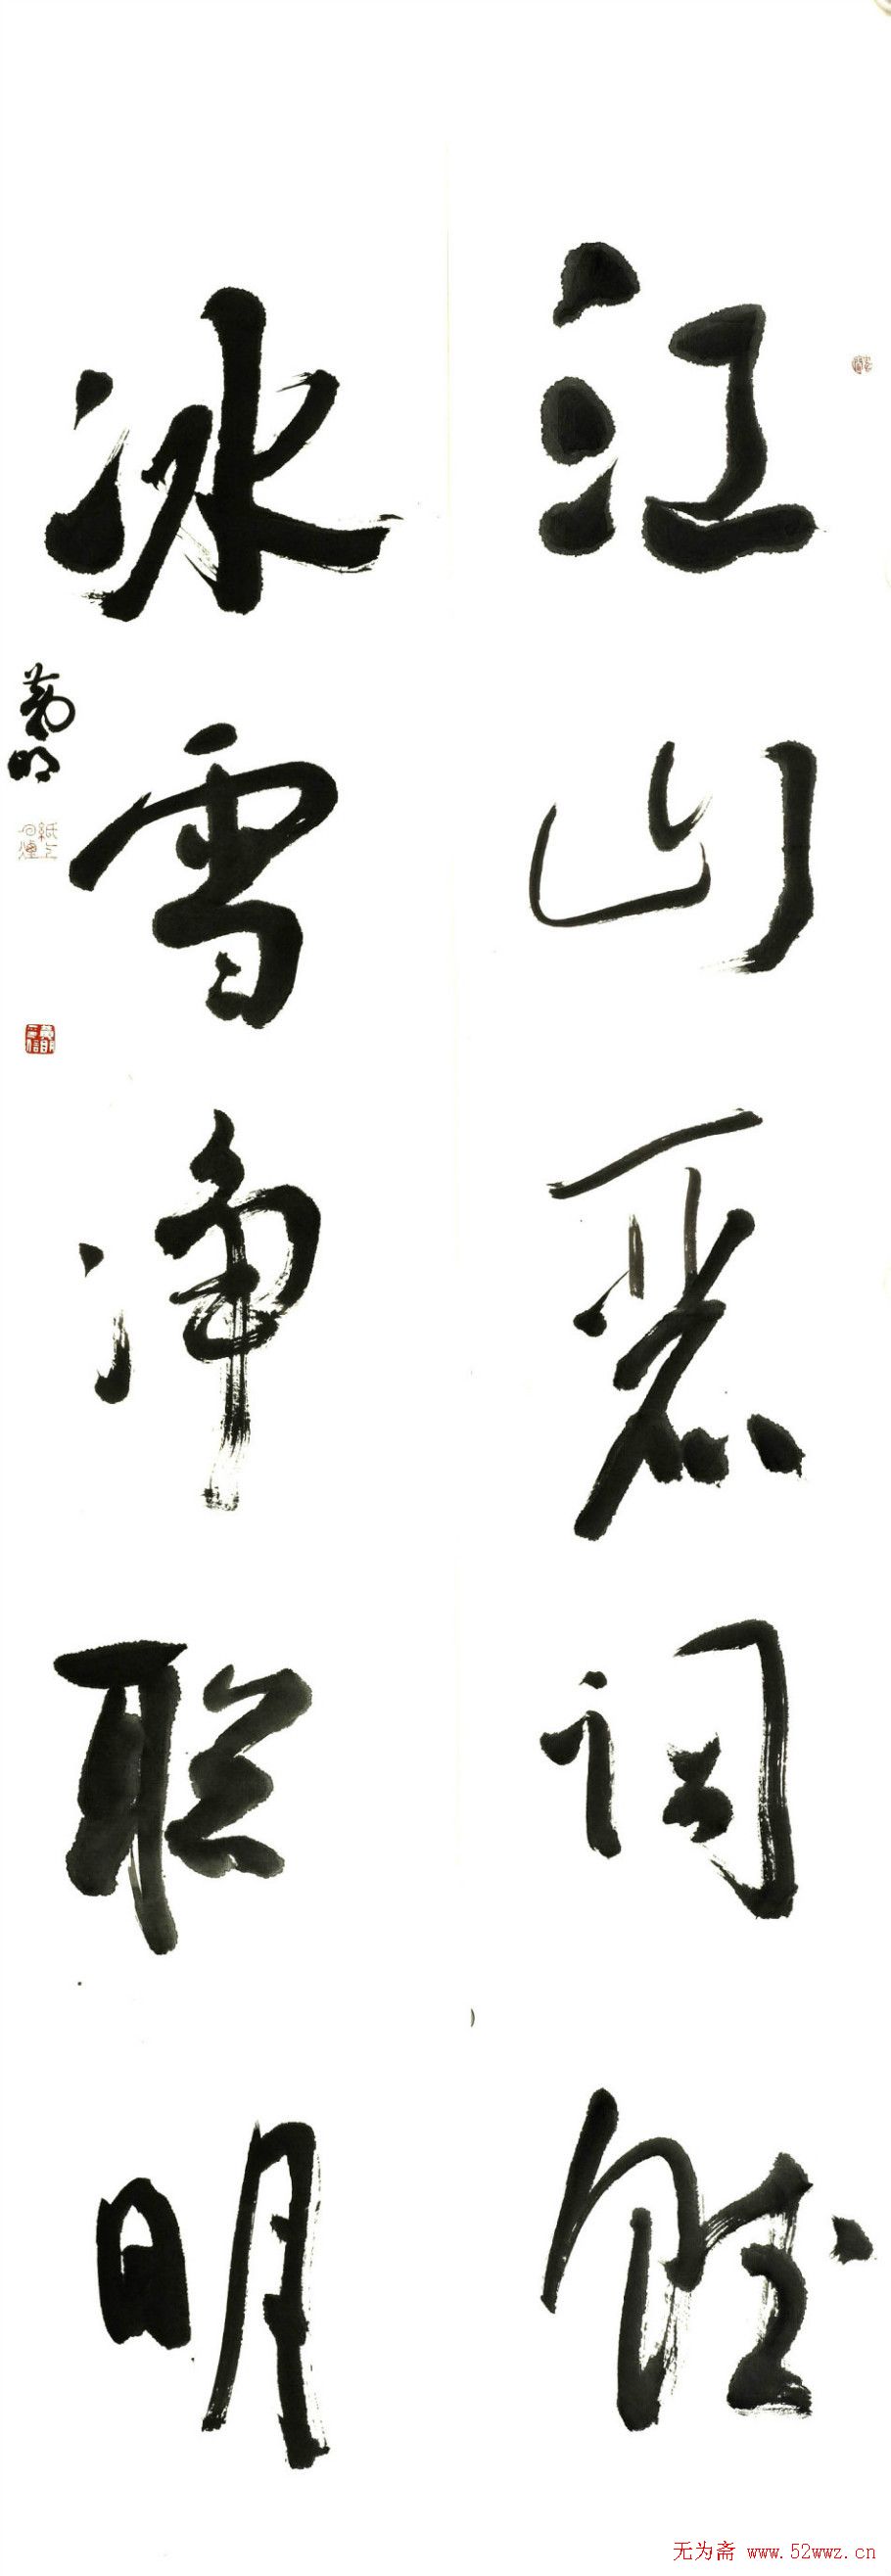 江山丽词赋
冰雪净聪明
菊明
纸上
无为斋 www.52wwz.cn